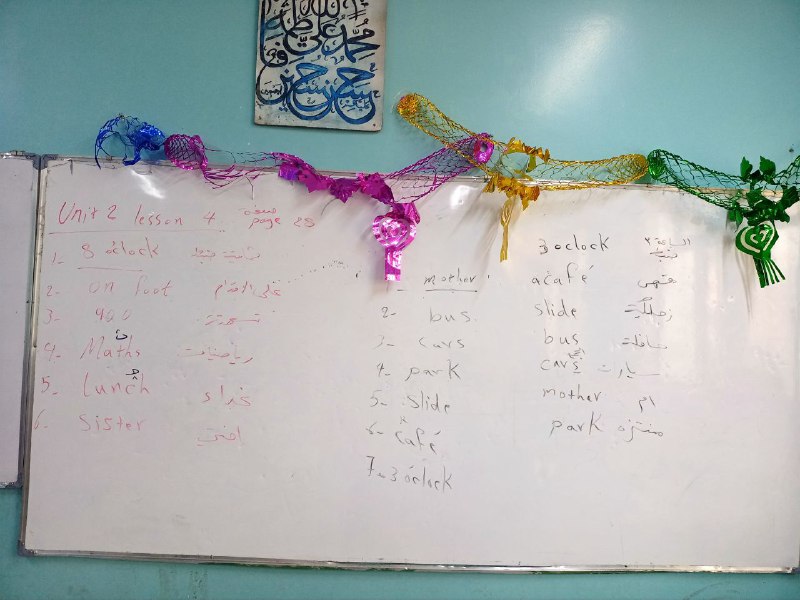 محمد علي فاطمة
حسن حسين
Unit 2 lesson 4 صفحة page 28
1- 8 óclock
2- on foot على الاقدام
3- 900
4- Maths رياضيات
5- Lunch غداء
6- Sister اختي
mother
2- bus
3- cars
4- park
5- Slide
6- café
7- 3 óclock
3 oclock الساعة ٣
acafé قهى
slide زحليگة
bus حافلة
cars سيارت
mother ام
park منتزه